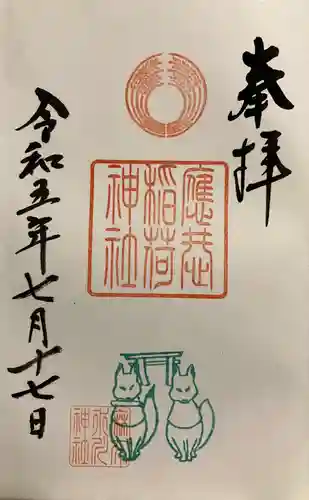 奉拝
稲荷
神社
令和五年七月十七日
神社